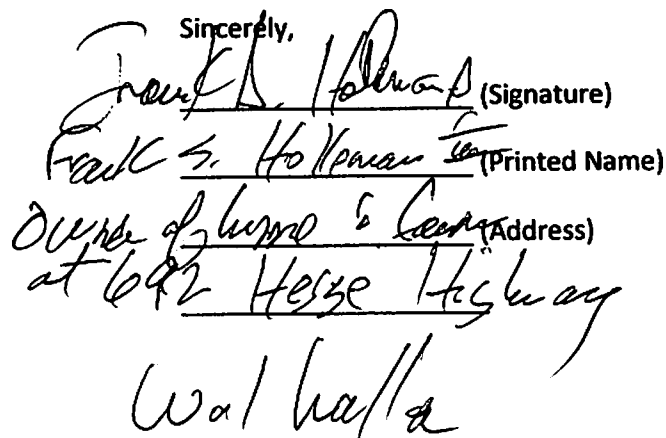 Sincerely,
Frank S. Holleman (Signature)
Frank S. Holleman III (Printed Name)
Owner of house & (Address)
at 692 Highway
Walhalla